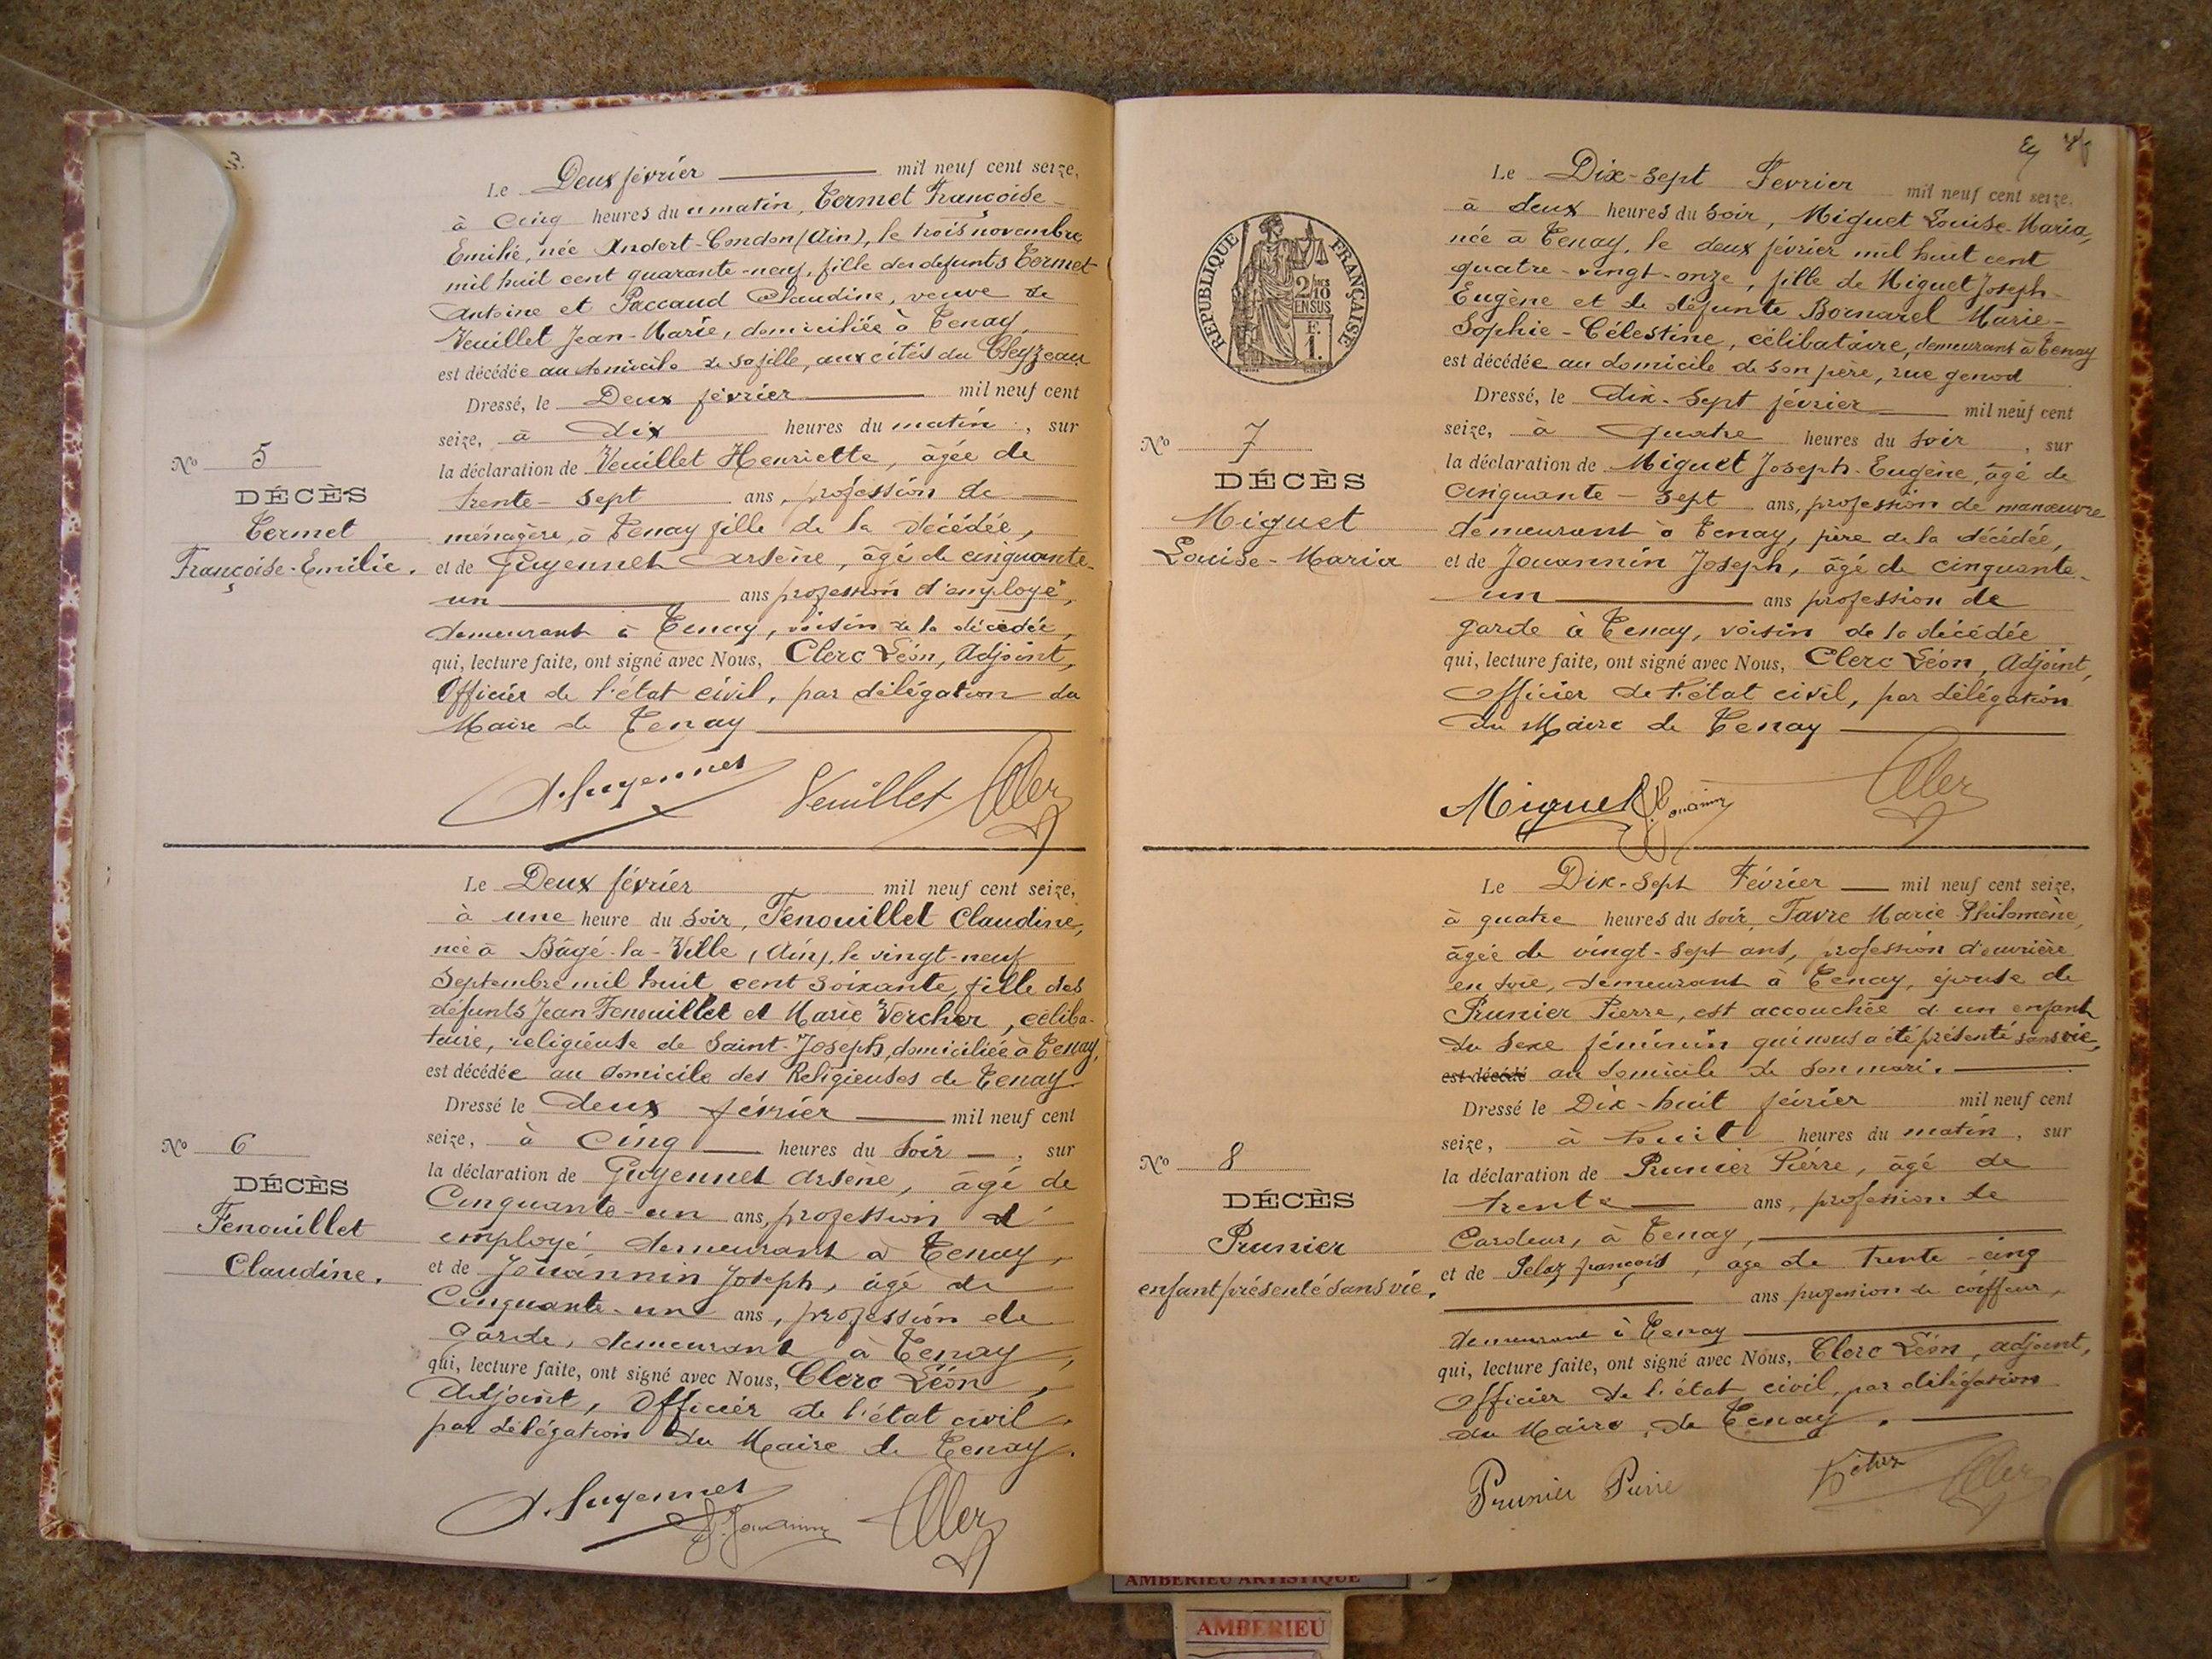 3.
Le Deux février mil neuf cent seize,
à cinq heures du matin, Termet Françoise-
Emilie, née Andert-Condon (Ain), le trois novembre
mil huit cent quarante-neuf, fille des defunts Termet
Antoine et Paccaud Claudine, veuve de
Veuillet Jean-Marie, domiciliée à Tenay,
est décédée au domicile de sa fille, aux cités du Cleyzeau
Dressé, le Deux février mil neuf cent
seize, à dix heures du matin, sur
la déclaration de Veuillet Henriette, âgée de
trente-sept ans, profession de
ménagère, à Tenay fille de la décédée,
et de Guyennet Arsène, âgé de cinquante-
un ans profession d'employé,
demeurant à Tenay, voisin de la décédée,
qui, lecture faite, ont signé avec Nous, Clerc Léon, Adjoint,
Officier de l'état civil, par délégation du
Maire de Tenay
No 5
DÉCÈS
Termet
Françoise-Emilie.
A. Guyennet Veuillet Clerc
Le Deux février mil neuf cent seize,
à une heure du soir, Fenouillet Claudine,
née à Bâgé-la-Ville (Ain), le vingt-neuf
Septembre mil huit cent soixante, fille des
défunts Jean Fenouillet et Marie Vercher, céliba-
taire, religieuse de Saint-Joseph, domiciliée à Tenay,
est décédée au domicile des Religieuses de Tenay
Dressé le deux février mil neuf cent
seize, à Cinq heures du soir, sur
la déclaration de Guyennet Arsène, âgé de
Cinquante-un ans, profession d'
employé, demeurant à Tenay,
et de Jouannin Joseph, âgé de
Cinquante-un ans, profession de
garde, demeurant à Tenay,
qui, lecture faite, ont signé avec Nous, Clerc Léon,
Adjoint, Officier de l'état civil,
par délégation du Maire de Tenay.
No 6
DÉCÈS
Fenouillet
Claudine.
A. Guyennet J. Jouannin Clerc
Le Dix-sept Fevrier mil neuf cent seize.
à deux heures du soir, Miguet Louise-Maria,
née à Tenay, le deux février mil huit cent
quatre-vingt-onze, fille de Miguet Joseph-
Eugène et de défunte Bornarel Marie-
Sophie-Célestine, célibataire, demeurant à Tenay
est décédée au domicile de son père, rue genod
Dressé, le dix-sept février mil neuf cent
seize, à quatre heures du soir, sur
la déclaration de Miguet Joseph-Eugène, âgé de
cinquante-sept ans, profession de manœuvre
demeurant à Tenay, père de la décédée,
et de Jouannin Joseph, âgé de cinquante-
un ans profession de
garde à Tenay, voisin de la décédée
qui, lecture faite, ont signé avec Nous, Clerc Léon, Adjoint,
Officier de l'état civil, par délégation
du Maire de Tenay
REPUBLIQUE FRANÇAISE
2/10
EN SUS
F.
1.
No 7
DÉCÈS
Miguet
Louise-Maria
Miguet J. Jouannin Clerc
Le Dix-sept Février mil neuf cent seize,
à quatre heures du soir, Favre Marie-Philomène,
âgée de vingt-sept ans, profession d'ouvrière
en soie, demeurant à Tenay, épouse de
Prunier Pierre, est accouchée d'un enfant
du sexe féminin qui nous a été présenté sans vie,
est décédé au domicile de son mari.
Dressé le Dix-huit février mil neuf cent
seize, à huit heures du matin, sur
la déclaration de Prunier Pierre, âgé de
trente ans, profession de
Cardeur, à Tenay,
et de Pelaz françois, âgé de trente-cinq
ans profession de coiffeur,
demeurant à Tenay
qui, lecture faite, ont signé avec Nous, Clerc Léon, adjoint,
Officier de l'état civil, par délégation
du Maire, de Tenay.
No 8
DÉCÈS
Prunier
enfant présenté sans vie.
Prunier Pierre Pelaz Clerc
AMBERIEU ARTISTIQUE
AMBERIEU